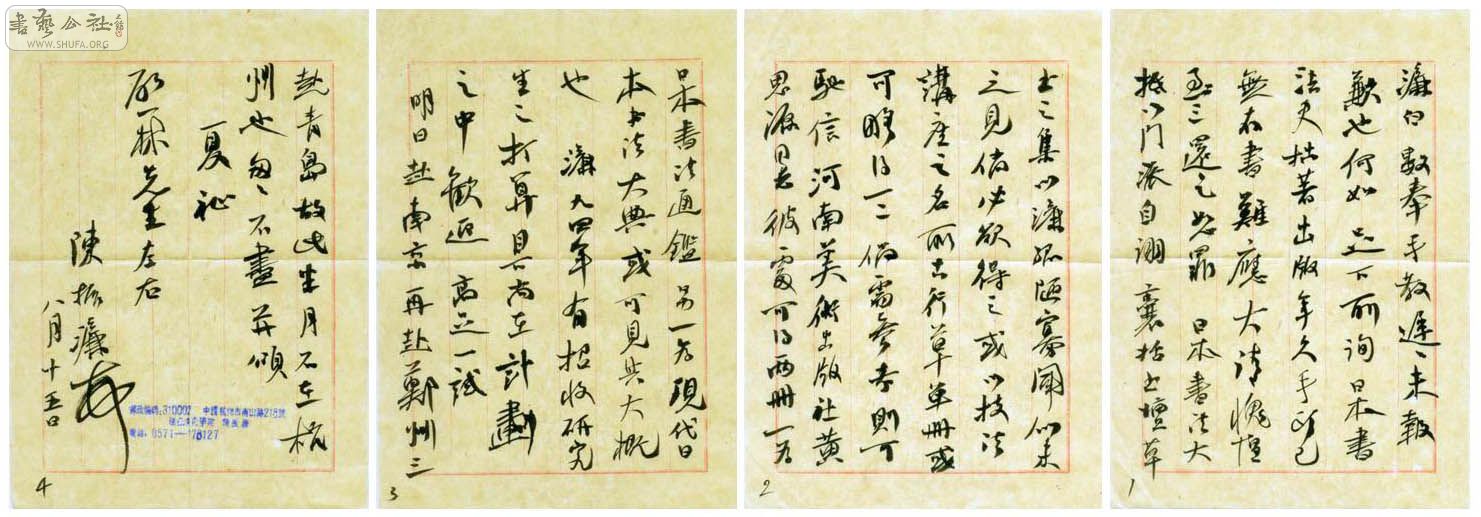 濂白數奉手教遲〻未報
歉也何如足下所詢日本書
法史拙著出版年久手頭已
無存書難應大請愧恧
再三還之恕罪 日本書法大
抵以門派自詡囊括土壇草
土之集以濂孤陋寡聞似未
之見倘必欲得之或以技法
講座之名所出行草單冊或
可購得一二倘需參考則可
馳信河南美術出版社黃
思源同志彼處可得兩冊一為
日本書法通鑑另一為現代日
本書法大典或可見其大概
也 濂九四年有招收研究
生之打算具尚在計劃
之中歡迎足下一試
明日赴南京再赴鄭州三
赴青島故此半月不在杭
州也匆〻不盡並頌
夏祉
一林先生左右
陳振濂
八月十五日
郵政編碼:310002 中國杭州市南山路218號
浙江美術學院 陳振濂
電話:0571—
1
2
3
4
書藝公社
WWW.SHUFA.ORG